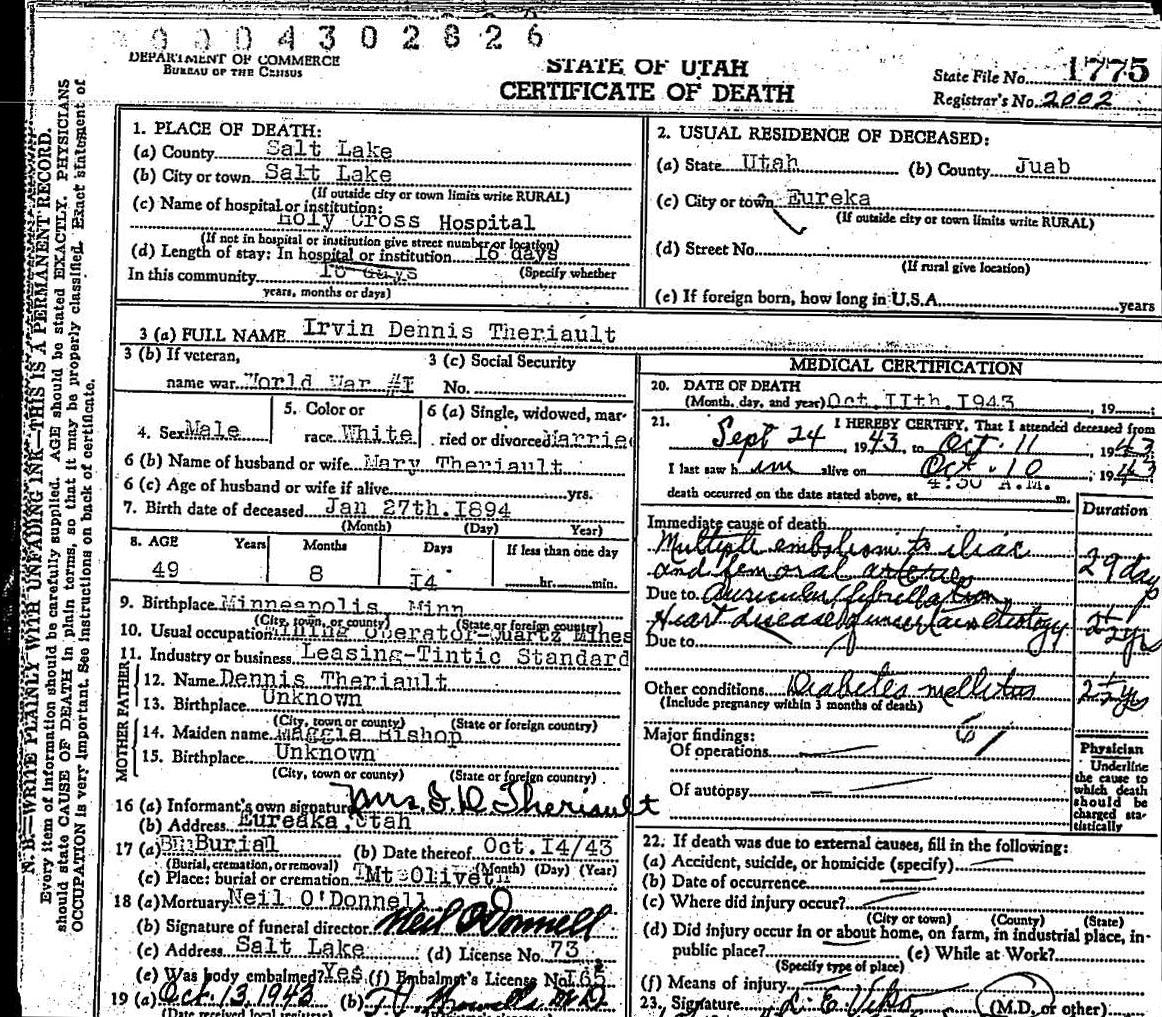 0004302826
DEPARTMENT OF COMMERCE
BUREAU OF THE CENSUS
STATE OF UTAH
CERTIFICATE OF DEATH
State File No. 1775
Registrar's No. 2002
N. B.—WRITE PLAINLY WITH UNFADING INK—THIS IS A PERMANENT RECORD.
Every item of information should be carefully supplied. AGE should be stated EXACTLY. PHYSICIANS
should state CAUSE OF DEATH in plain terms, so that it may be properly classified. Exact statement of
OCCUPATION is very important. See instructions on back of certificate.
1. PLACE OF DEATH:
(a) County Salt Lake
(b) City or town Salt Lake
(If outside city or town limits write RURAL)
(c) Name of hospital or institution:
Holy Cross Hospital
(If not in hospital or institution give street number or location)
(d) Length of stay: In hospital or institution 16 days
(Specify whether
In this community days
years, months or days)
2. USUAL RESIDENCE OF DECEASED:
(a) State Utah (b) County Juab
(c) City or town Eureka
(If outside city or town limits write RURAL)
(d) Street No.
(If rural give location)
(e) If foreign born, how long in U.S.A. years
3 (a) FULL NAME Irvin Dennis Theriault
3 (b) If veteran, 3 (c) Social Security
name war World War #I No.
4. Sex Male 5. Color or race White 6 (a) Single, widowed, mar-
ried or divorced Marrie
6 (b) Name of husband or wife Mary Theriault
6 (c) Age of husband or wife if alive yrs.
7. Birth date of deceased Jan 27th.I894
(Month) (Day) Year)
8. AGE Years Months Days If less than one day
49 8 I4 hr. min.
9. Birthplace Minneapolis, Minn
(City, town, or county) (State or foreign country)
10. Usual occupation Mining Operator-Quartz Mines
11. Industry or business Leasing-Tintic Standard
FATHER
12. Name Dennis Theriault
13. Birthplace Unknown
(City, town or county) (State or foreign country)
MOTHER
14. Maiden name Maggie Bishop
15. Birthplace Unknown
(City, town or county) (State or foreign country)
16 (a) Informant's own signature Mrs. I D Theriault
(b) Address Eureaka, Utah
17 (a) Burial (b) Date thereof Oct.I4/43
(Burial, cremation, or removal) (Month) (Day) (Year)
(c) Place: burial or cremation Mt Olivet
18 (a) Mortuary Neil O'Donnell
(b) Signature of funeral director Neil O'Donnell
(c) Address Salt Lake (d) License No. 73
(e) Was body embalmed? Yes (f) Embalmer's License No. I65
19 (a) Oct. 13, 1943 (b)
(Date received local registrar)
MEDICAL CERTIFICATION
20. DATE OF DEATH
(Month, day, and year) Oct.IIth.I943, 19
21. I HEREBY CERTIFY, That I attended deceased from
Sept 24, 1943, to Oct. 11, 1943
I last saw him alive on Oct. 10, 1943
death occurred on the date stated above, at 4:30 A.M. m.
Duration
Immediate cause of death
Multiple embolism to iliac
and femoral arteries 29 days
Due to Auricular fibrillation
Heart disease of uncertain etiology 2½ yrs
Due to
Other conditions Diabetes mellitus 2½ yrs
(Include pregnancy within 3 months of death)
61
Major findings:
Of operations
Of autopsy
Physician
Underline
the cause to
which death
should be
charged sta-
tistically
22. If death was due to external causes, fill in the following:
(a) Accident, suicide, or homicide (specify)
(b) Date of occurrence
(c) Where did injury occur?
(City or town) (County) (State)
(d) Did injury occur in or about home, on farm, in industrial place, in-
public place? (e) While at Work?
(Specify type of place)
(f) Means of injury
23. Signature (M.D. or other)